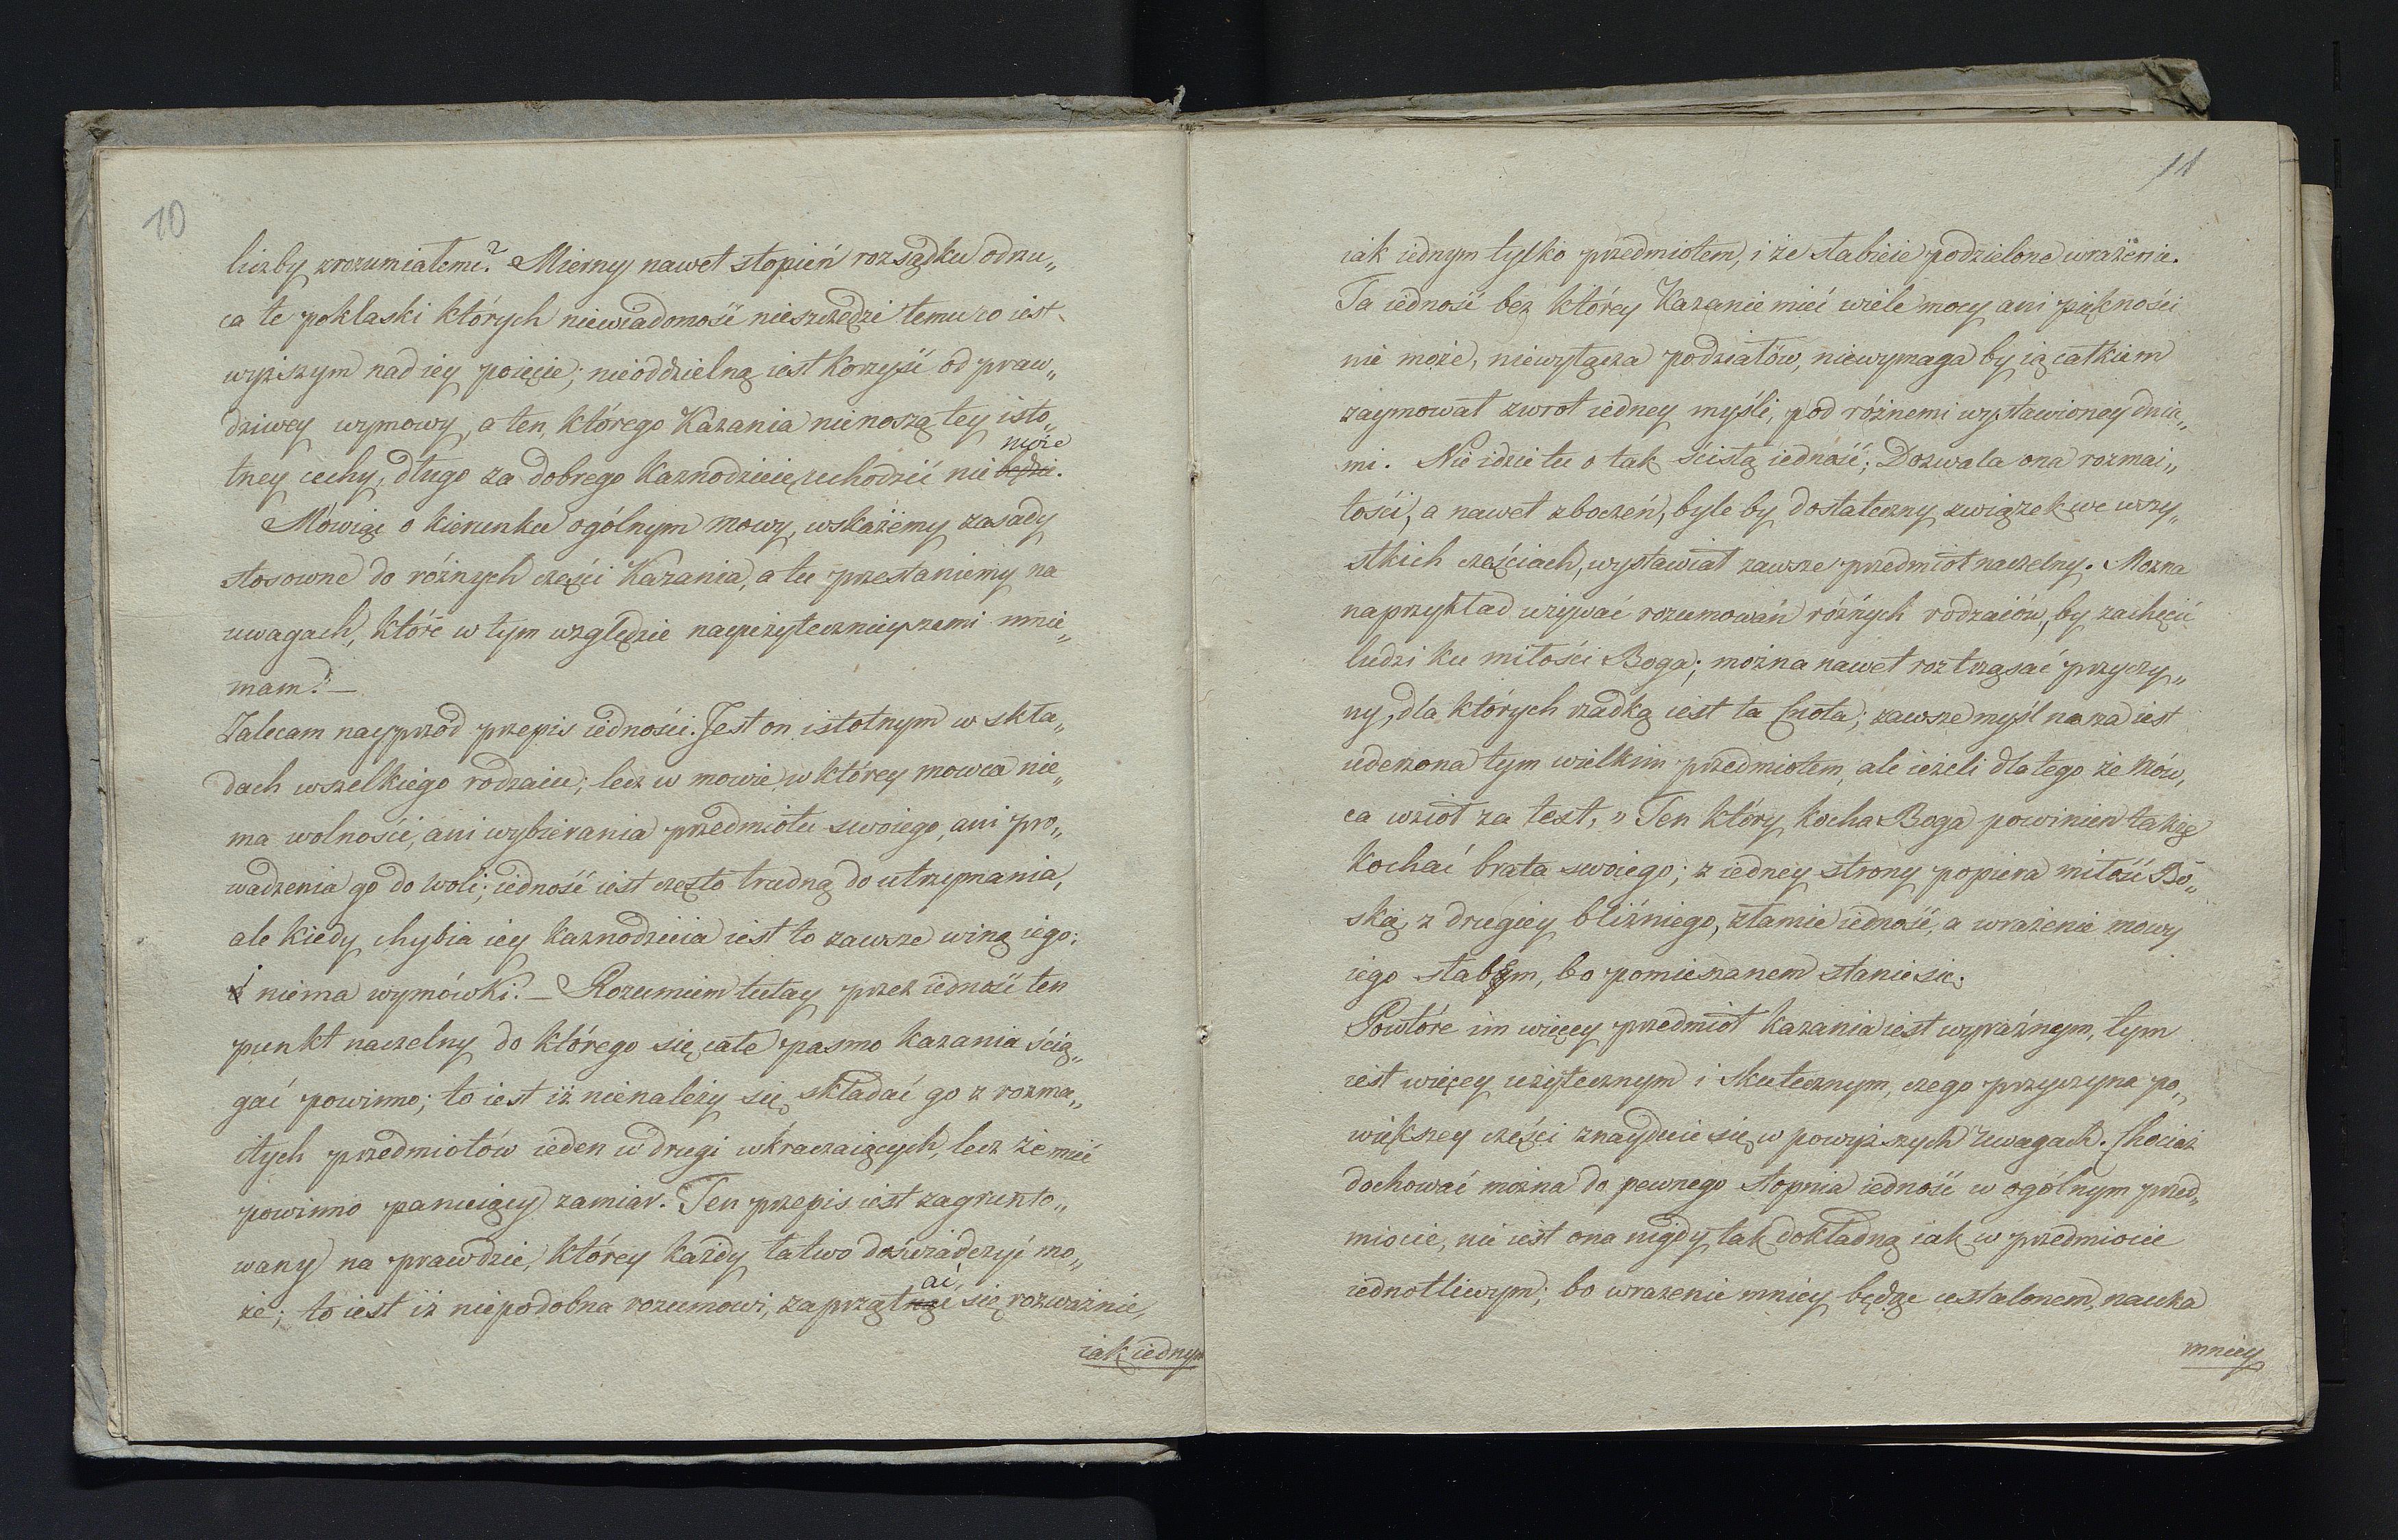 10
liczby zrozumiałemi? Mierny nawet stopień rozsądku odrzu„
ca te poklaski których niewiadomość nieszczędzi temu co iest
wyższym nad iey poięcie; nieoddzielną iest korzyść od praw„
dziwey wymowy, a ten, którego Kazania nie noszą tey isto„
może
tney cechy, długo za dobrego Kaznodzieię uchodzić nie będzie.
Mówiąc o kierunku ogólnym mowy, wskażemy zasady
stosowne do różnych części Kazania, a tu przestaniemy na
uwagach, któré w tym względzie nayużytecznieyszemi mnie„
mam. —
Zalecam nayprzód przepis iedności. Jest on istotnym w skła„
dach wszelkiego rodzaiu; lecz w mowie, w którey mowca nie„
ma wolności, ani wybierania przedmiotu swoiego, ani pro„
wadzenia go do woli; iedność iest często trudną do utrzymania,
ale kiedy chybia iey kaznodzieia iest to zawsze winą iego;
i niema wymówki. — Rozumiem tutay przez iedność ten
punkt naczelny do którego się całe pasmo kazania ścią„
gać powinno; to iest iż nienależy się składać go z rozma„
itych przedmiotów ieden w drugi wkraczaiących, lecz że mieć
powinno panuiący zamiar. Ten przepis iest zagrunto„
wany na prawdzie, którey każdy łatwo doświadczyć mo„
ać
że; to iest iż niepodobna rozumowi, zaprzątnąć się rozważnie,
iak iednym
11
iak iednym tylko przedmiotem, i że słabieie podzielone wrażenie.
Ta iedność bez którey Kazanie mieć wiele mocy ani piękności
nie może, niewyłącza podziałów, niewymaga by ią całkiem
zaymował zwrot iedney myśli, pod różnemi wystawioney dnia„
mi. Nie idzie tu o tak ścisłą iedność; Dozwala ona rozmai„
tości, a nawet zboczeń, byle by dostateczny związek we wszy„
stkich częściach, wystawiał zawsze przedmiot naczelny. Mozna
naprzykład używać rozumowań różnych rodzaiów, by zachęcić
ludzi ku miłości Boga; można nawet roztrząsać przyczy„
ny, dla których rzadką iest ta Cnota; zawsze myśl nasza iest
uderzona tym wielkim przedmiotem, ale ieżeli dla tego że Mów„
ca wziół za test, „ Ten który kocha Boga powinien także
kochać brata swoiego; z iedney strony popiera miłość Bo„
ską, z drugiey bliźniego, złamie iedność, a wrażenie mowy
iego słabym, bo pomieszanem stanie się.
Powtóre im więcey przedmiot kazania iest wyraźnym, tym
iest więcey użytecznym i Skutecznym, czego przyczyna po„
większey części znayduie się w powyższych Uwagach. Chociaż
dochować można do pewnego stopnia iedność w ogólnym przed„
miocie, nie iest ona nigdy tak dokładną iak w przedmiocie
iednotliwym; bo wrażenie mniey będze ustalonem, nauka
mniey